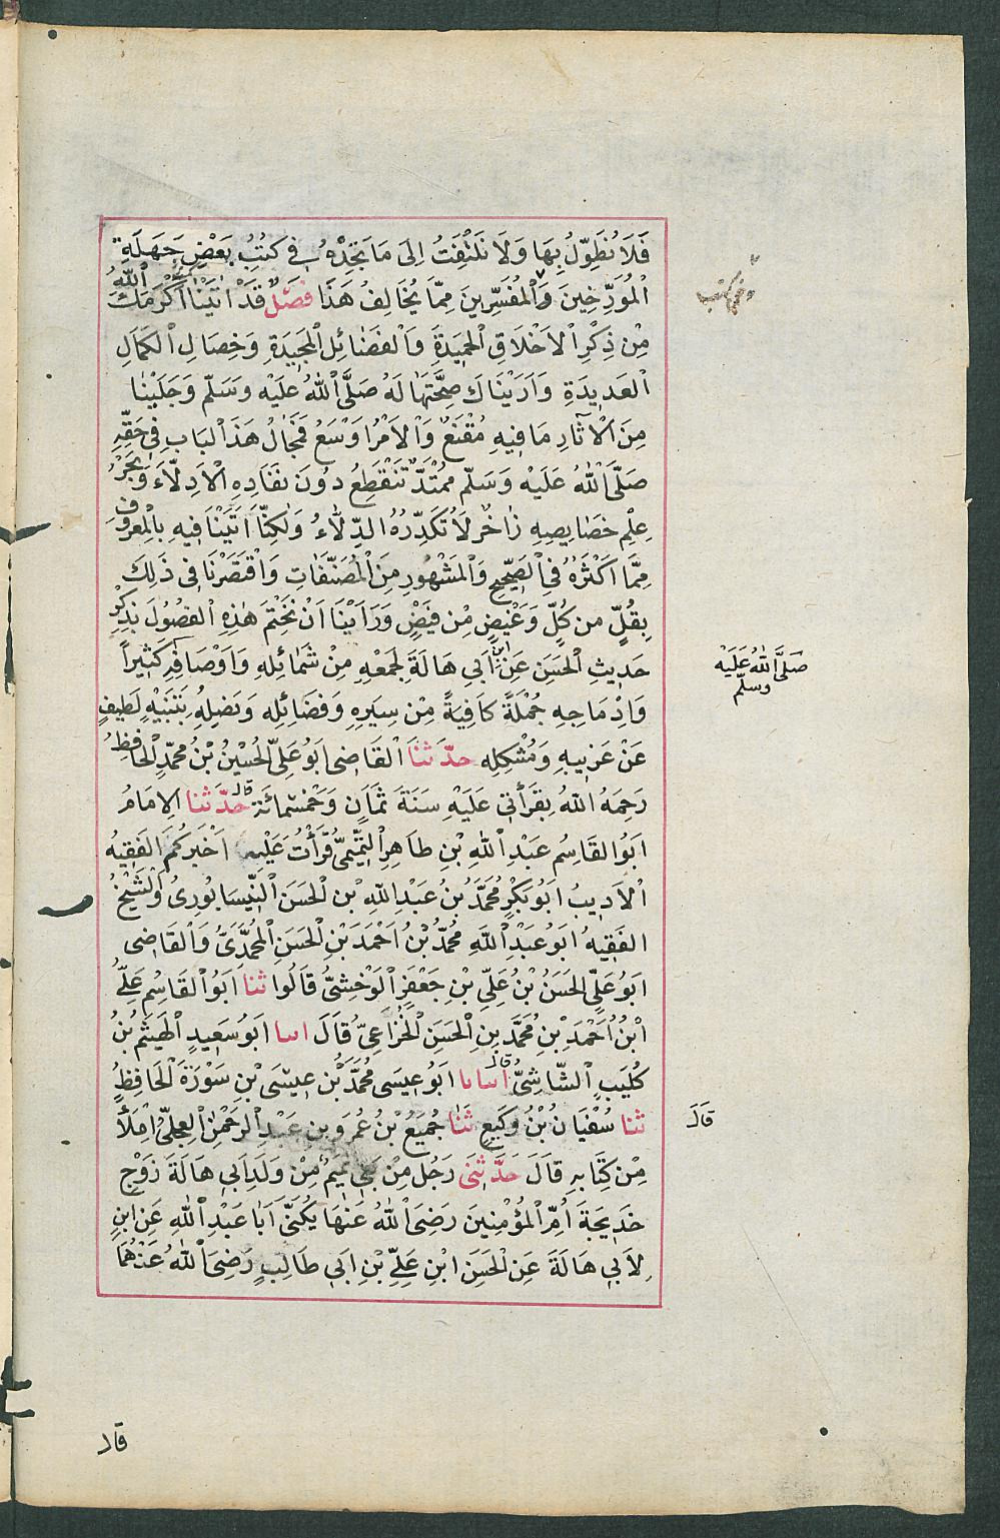 فَلَا نُطَوِّلُ بِهَا وَلَا نَلْتَفِتُ إِلَى مَا تَجِدُهُ فِي كُتُبِ بَعْضِ جَهَلَةِ
الْمُوَرِّخِينَ وَالْمُفَسِّرِينَ مِمَّا يُخَالِفُ هَذَا فَصْلٌ قَدْ اٰتَيْنَا أَكْرَمَكَ اللهُ
مِنْ ذِكْرِ الْاَخْلَاقِ الْحَمِيدَةِ وَالْفَضَائِلِ الْمَجِيدَةِ وَخِصَالِ الْكَمَالِ
الْعَدِيدَةِ وَاَرَيْنَاكَ صِحَّتَهَا لَهُ صَلَّى اللهُ عَلَيْهِ وَسَلَّمَ وَجَلَبْنَا
مِنَ الْآثَارِ مَا فِيهِ مُقْنَعٌ وَالْاَمْرُ اَوْسَعُ فَمَجَالُ هَذَا الْبَابِ فِي حَقِّهِ
صَلَّى اللهُ عَلَيْهِ وَسَلَّمَ مُمْتَدٌّ تَنْقَطِعُ دُونَ نَفَادِهِ الْاَدِلَّاءُ وَبَحْرُ
عِلْمِ خَصَايِصِهِ زَاخِرٌ لَا تُكَدِّرُهُ الدِّلَاءُ وَلٰكِنَّا اَتَيْنَا فِيهِ بِالْمَعْرُوفِ
مِمَّا اَكْثَرُهُ فِي الصَّحِيحِ وَالْمَشْهُورِ مِنَ الْمُصَنَّفَاتِ وَاقْتَصَرْنَا فِي ذَلِكَ
بِقُلٍّ مِن كُلٍّ وَغَيْضٍ مِنْ فَيْضٍ وَرَاَيْنَا اَنْ نَخْتِمَ هٰذِهِ الْفُصُولَ بِذِكْرِ
حَدِيثِ الْحَسَنِ عَنِ ابْنِ اَبِي هَالَةَ لِجَمْعِهِ مِنْ شَمَائِلِهِ وَاَوْصَافِهِ كَثِيرًا
وَاِدْمَاجِهِ جُمْلَةً كَافِيَةً مِنْ سِيَرِهِ وَفَضَائِلِهِ وَنَصِلُهُ بِتَنْبِيهٍ لَطِيفٍ
عَنْ غَرِيبِهِ وَمُشْكِلِهِ حَدَّثَنَا الْقَاضِي اَبُو عَلِيٍّ الْحُسَيْنُ بْنُ مُحَمَّدٍ الْحَافِظُ
رَحِمَهُ اللهُ بِقَرَأَتِي عَلَيْهِ سَنَةَ ثَمَانٍ وَخَمْسِمِائَةٍ قال حَدَّثنا الْاِمَامُ
اَبُو الْقَاسِمِ عَبْدِ اللهِ بْنِ طَاهِرٍ التَّمِيمِيُّ قَرَأْتُ عَلَيْهِ اَخْبَرَكُمُ الْفَقِيهُ
الْاَدِيبُ اَبُو بَكْرٍ مُحَمَّدُ بْنُ عَبْدِ اللهِ بْنِ الْحَسَنِ النَّيْسَابُورِيُّ وَالشَّيْخُ
الْفَقِيهُ اَبُو عَبْدِ اللهِ مُحَمَّدُ بْنُ اَحْمَدَ بْنِ الْحَسَنِ الْمُحَمَّدِيُّ وَالْقَاضِي
اَبُو عَلِيٍّ الْحَسَنُ بْنُ عَلِيِّ بْنِ جَعْفَرٍ الْوَخْشِيُّ قَالُوا ثنا اَبُو الْقَاسِمِ عَلِيُّ
ابْنُ اَحْمَدَ بْنِ مُحَمَّدِ بْنِ الْحَسَنِ الْخُزَاعِيُّ قَالَ انبا اَبُو سَعِيدٍ الْهَيْثَمُ بْنُ
كُلَيْبٍ الشَّاشِيُّ قال انبانا اَبُو عِيسَى مُحَمَّدُ بْنِ عِيسَى بْنِ سَوْرَةَ الْحَافِظُ
ثنا سُفْيَانُ بْنُ وَكِيعٍ ثَنَا جُمَيْعُ بْنُ عُمَرَ وبنِ عَبْدِ الرَحْمٰنِ الْعِجْلِيُّ اِمْلَاءً
مِنْ كِتَابِهِ قَالَ حَدَّثَنَي رَجُلٌ مِنْ بَنِي تَمِيمٍ مِنْ وَلَدِ اَبِي هَالَةَ زَوْجِ
خَدِيجَةَ اُمِّ الْمُؤْمِنِينَ رَضِيَ اللهُ عَنْهَا يُكَنَّى اَبَا عَبْدِ اللهِ عَنِ ابْنٍ
لِاَبِي هَالَةَ عَنِ الْحَسَنِ ابْنِ عَلِيِّ بْنِ اَبِي طَالِبٍ رَضِيَ اللهُ عَنْهُمَا
صَلَّى اللهُ عَلَيْهِ
وسلّم
قَالَ
قال